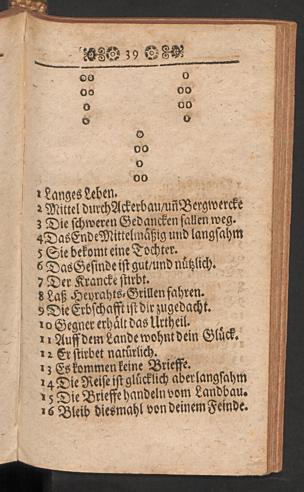 39
1 Langes Leben.
2 Mittel durch Ackerbau/uñ Bergwercke
3 Die schweren Gedancken fallen weg.
4 Das Ende Mittelmäßig und langsahm
5 Sie bekomt eine Tochter.
6 Das Gesinde ist gut/und nützlich.
7 Der Krancke stirbt.
8 Laß Heyrahts-Grillen fahren.
9 Die Erbschafft ist dir zugedacht.
10 Gegner erhält das Urtheil.
11 Auff dem Lande wohnt dein Glück.
12 Er stirbet natürlich.
13 Es kommen keine Brieffe.
14 Die Reise ist glücklich aber langsahm
15 Die Brieffe handeln vom Landbau.
16 Bleib diesmahl von deinem Feinde.